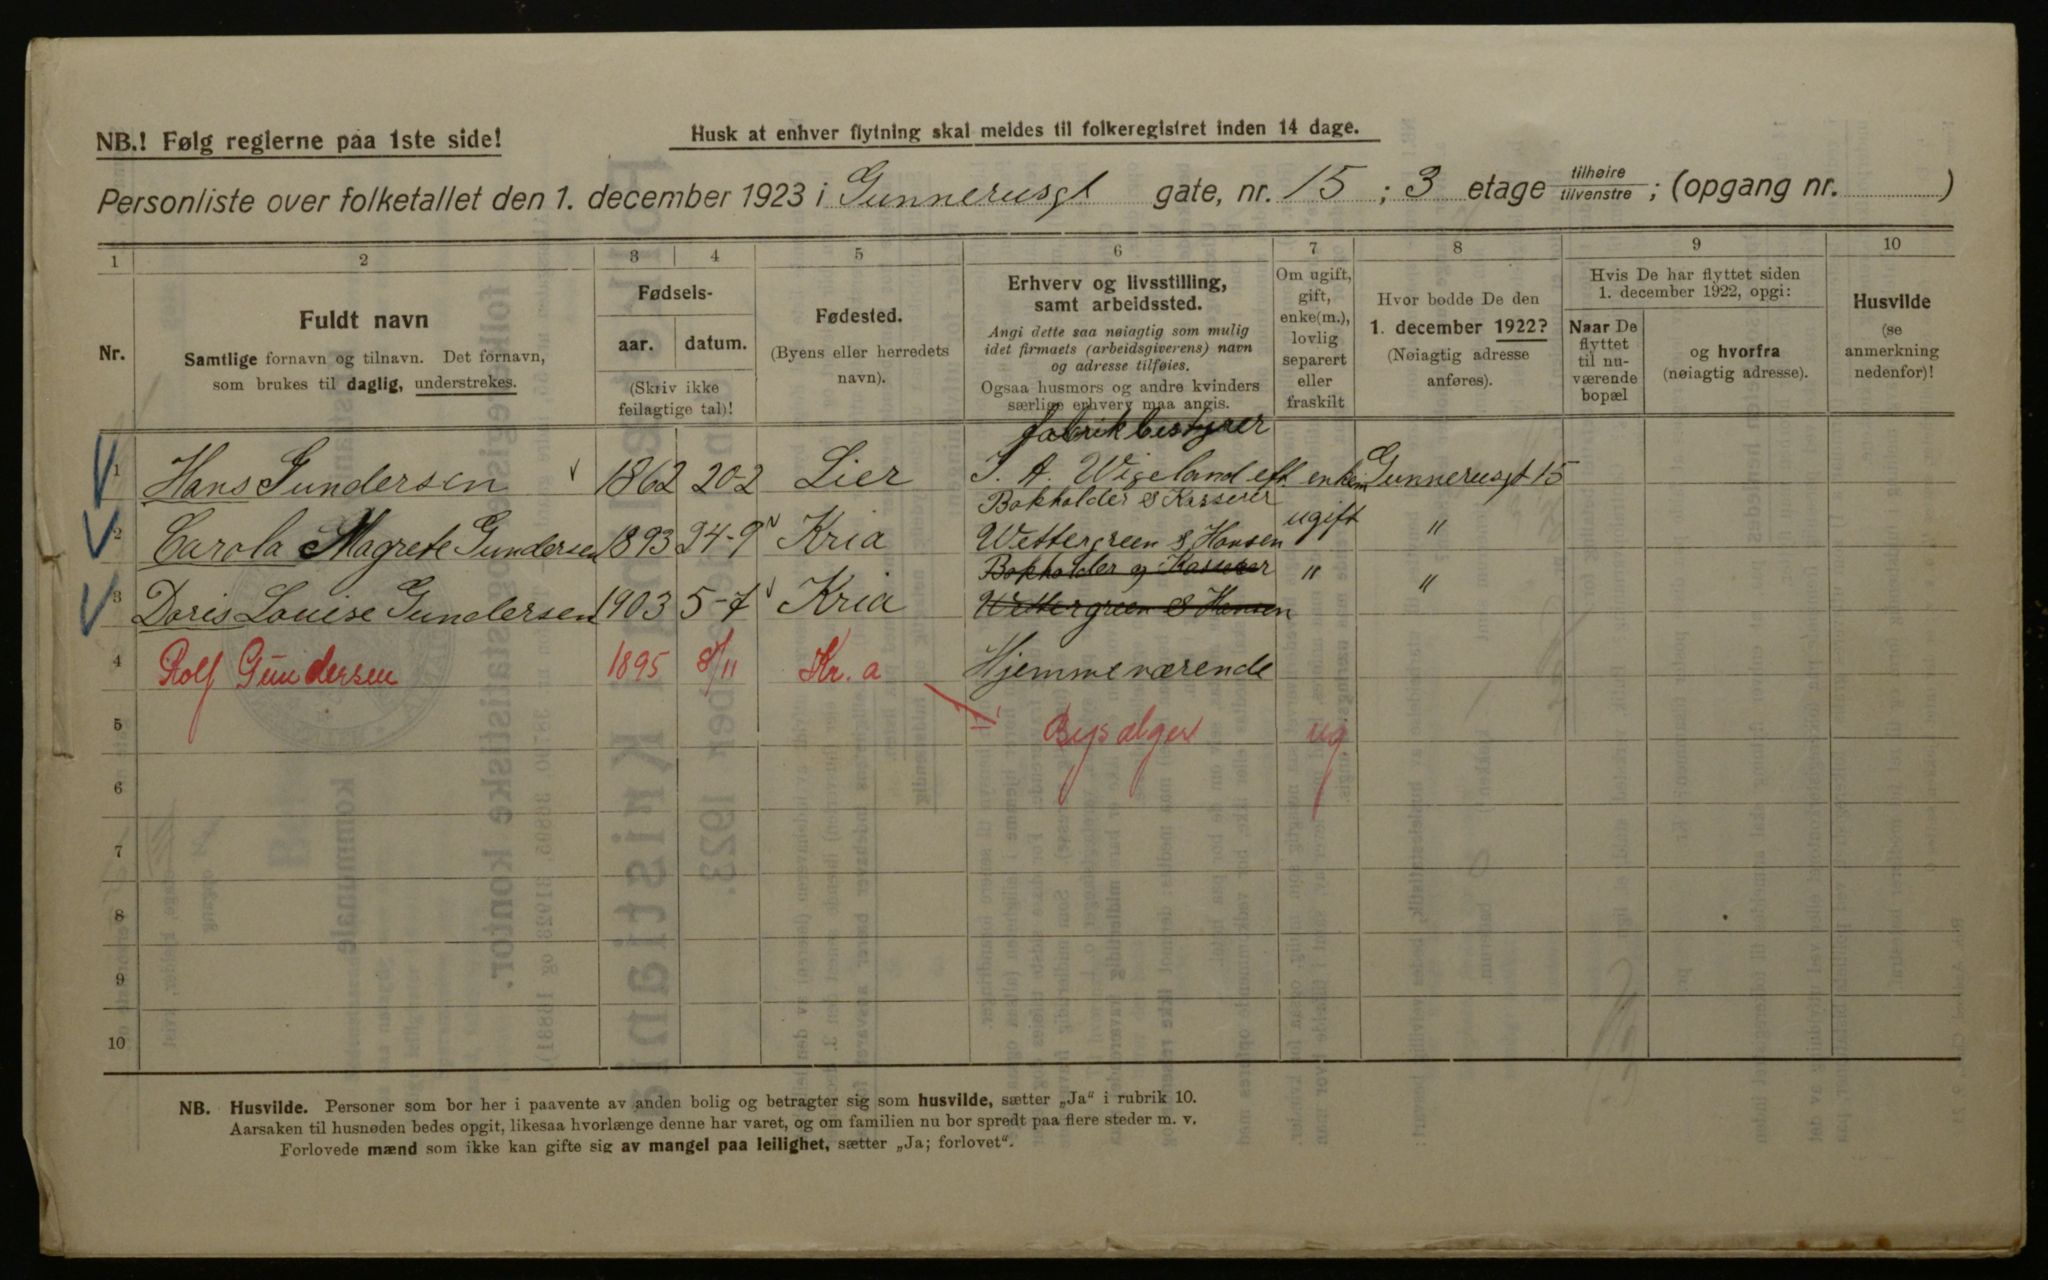 NB.! Følg reglerne paa 1ste side!
Husk at enhver flytning skal meldes til folkeregistret inden 14 dage.
Personliste over folketallet den 1. december 1923 i Gunnerusgt gate, nr. 15 ; 3 etage tilhøire tilvenstre ; (opgang nr. )
1 2 3 4 5 6 7 8 9 10
Nr.
Fuldt navn
Samtlige fornavn og tilnavn. Det fornavn,
som brukes til daglig, understrekes.
Fødsels-
aar. datum.
(Skriv ikke
feilagtige tal)!
Fødested.
(Byens eller herredets
navn).
Erhverv og livsstilling,
samt arbeidssted.
Angi dette saa nøiagtig som mulig
idet firmaets (arbeidsgiverens) navn
og adresse tilføies.
Ogsaa husmors og andre kvinders
særlige erhverv maa angis.
Om ugift,
gift,
enke(m.),
lovlig
separert
eller
fraskilt
Hvor bodde De den
1. december 1922?
(Nøiagtig adresse
anføres).
Hvis De har flyttet siden
1. december 1922, opgi:
Naar De
flyttet
til nu-
værende
bopæl
og hvorfra
(nøiagtig adresse).
Husvilde
(se
anmerkning
nedenfor)!
fabrikbestyrer
1 Hans Gundersen 1862 20-2 Lier J. A. Wigeland eft enkem Gunnerusgt 15
Bokholder & Kasserer
2 Carola Magrete Gundersen 1893 24-9 Kria Wettergreen & Hansen ugift "
Bokholder og Kasserer
3 Doris Louise Gundersen 1903 5-7 Kria Wettergreen & Hansen " "
4 Rolf Gundersen 1895 8/11 Kr.a Hjemmeværende
5 Bysælger ug.
6
7
8
9
10
NB. Husvilde. Personer som bor her i paavente av anden bolig og betragter sig som husvilde, sætter „Ja“ i rubrik 10.
Aarsaken til husnøden bedes opgit, likesaa hvorlænge denne har varet, og om familien nu bor spredt paa flere steder m. v.
Forlovede mænd som ikke kan gifte sig av mangel paa leilighet, sætter „Ja; forlovet“.